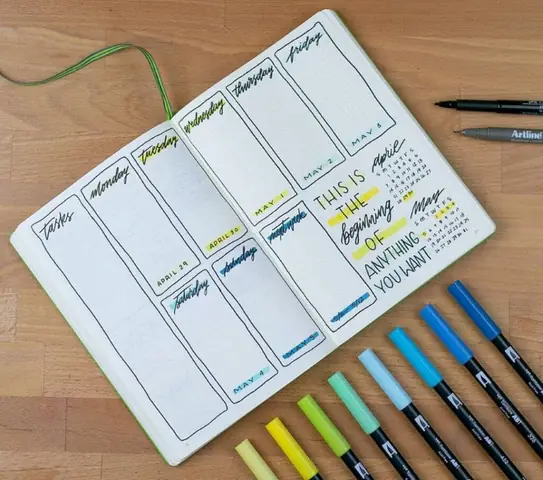 tasks
monday
APRIL 29
tuesday
APRIL 30
wednesday
MAY 1
thursday
MAY 2
friday
MAY 3
saturday
MAY 4
sunday
MAY 5
next week
THIS IS
THE
beginning
OF
ANYTHING
YOU WANT
april
may
Artline